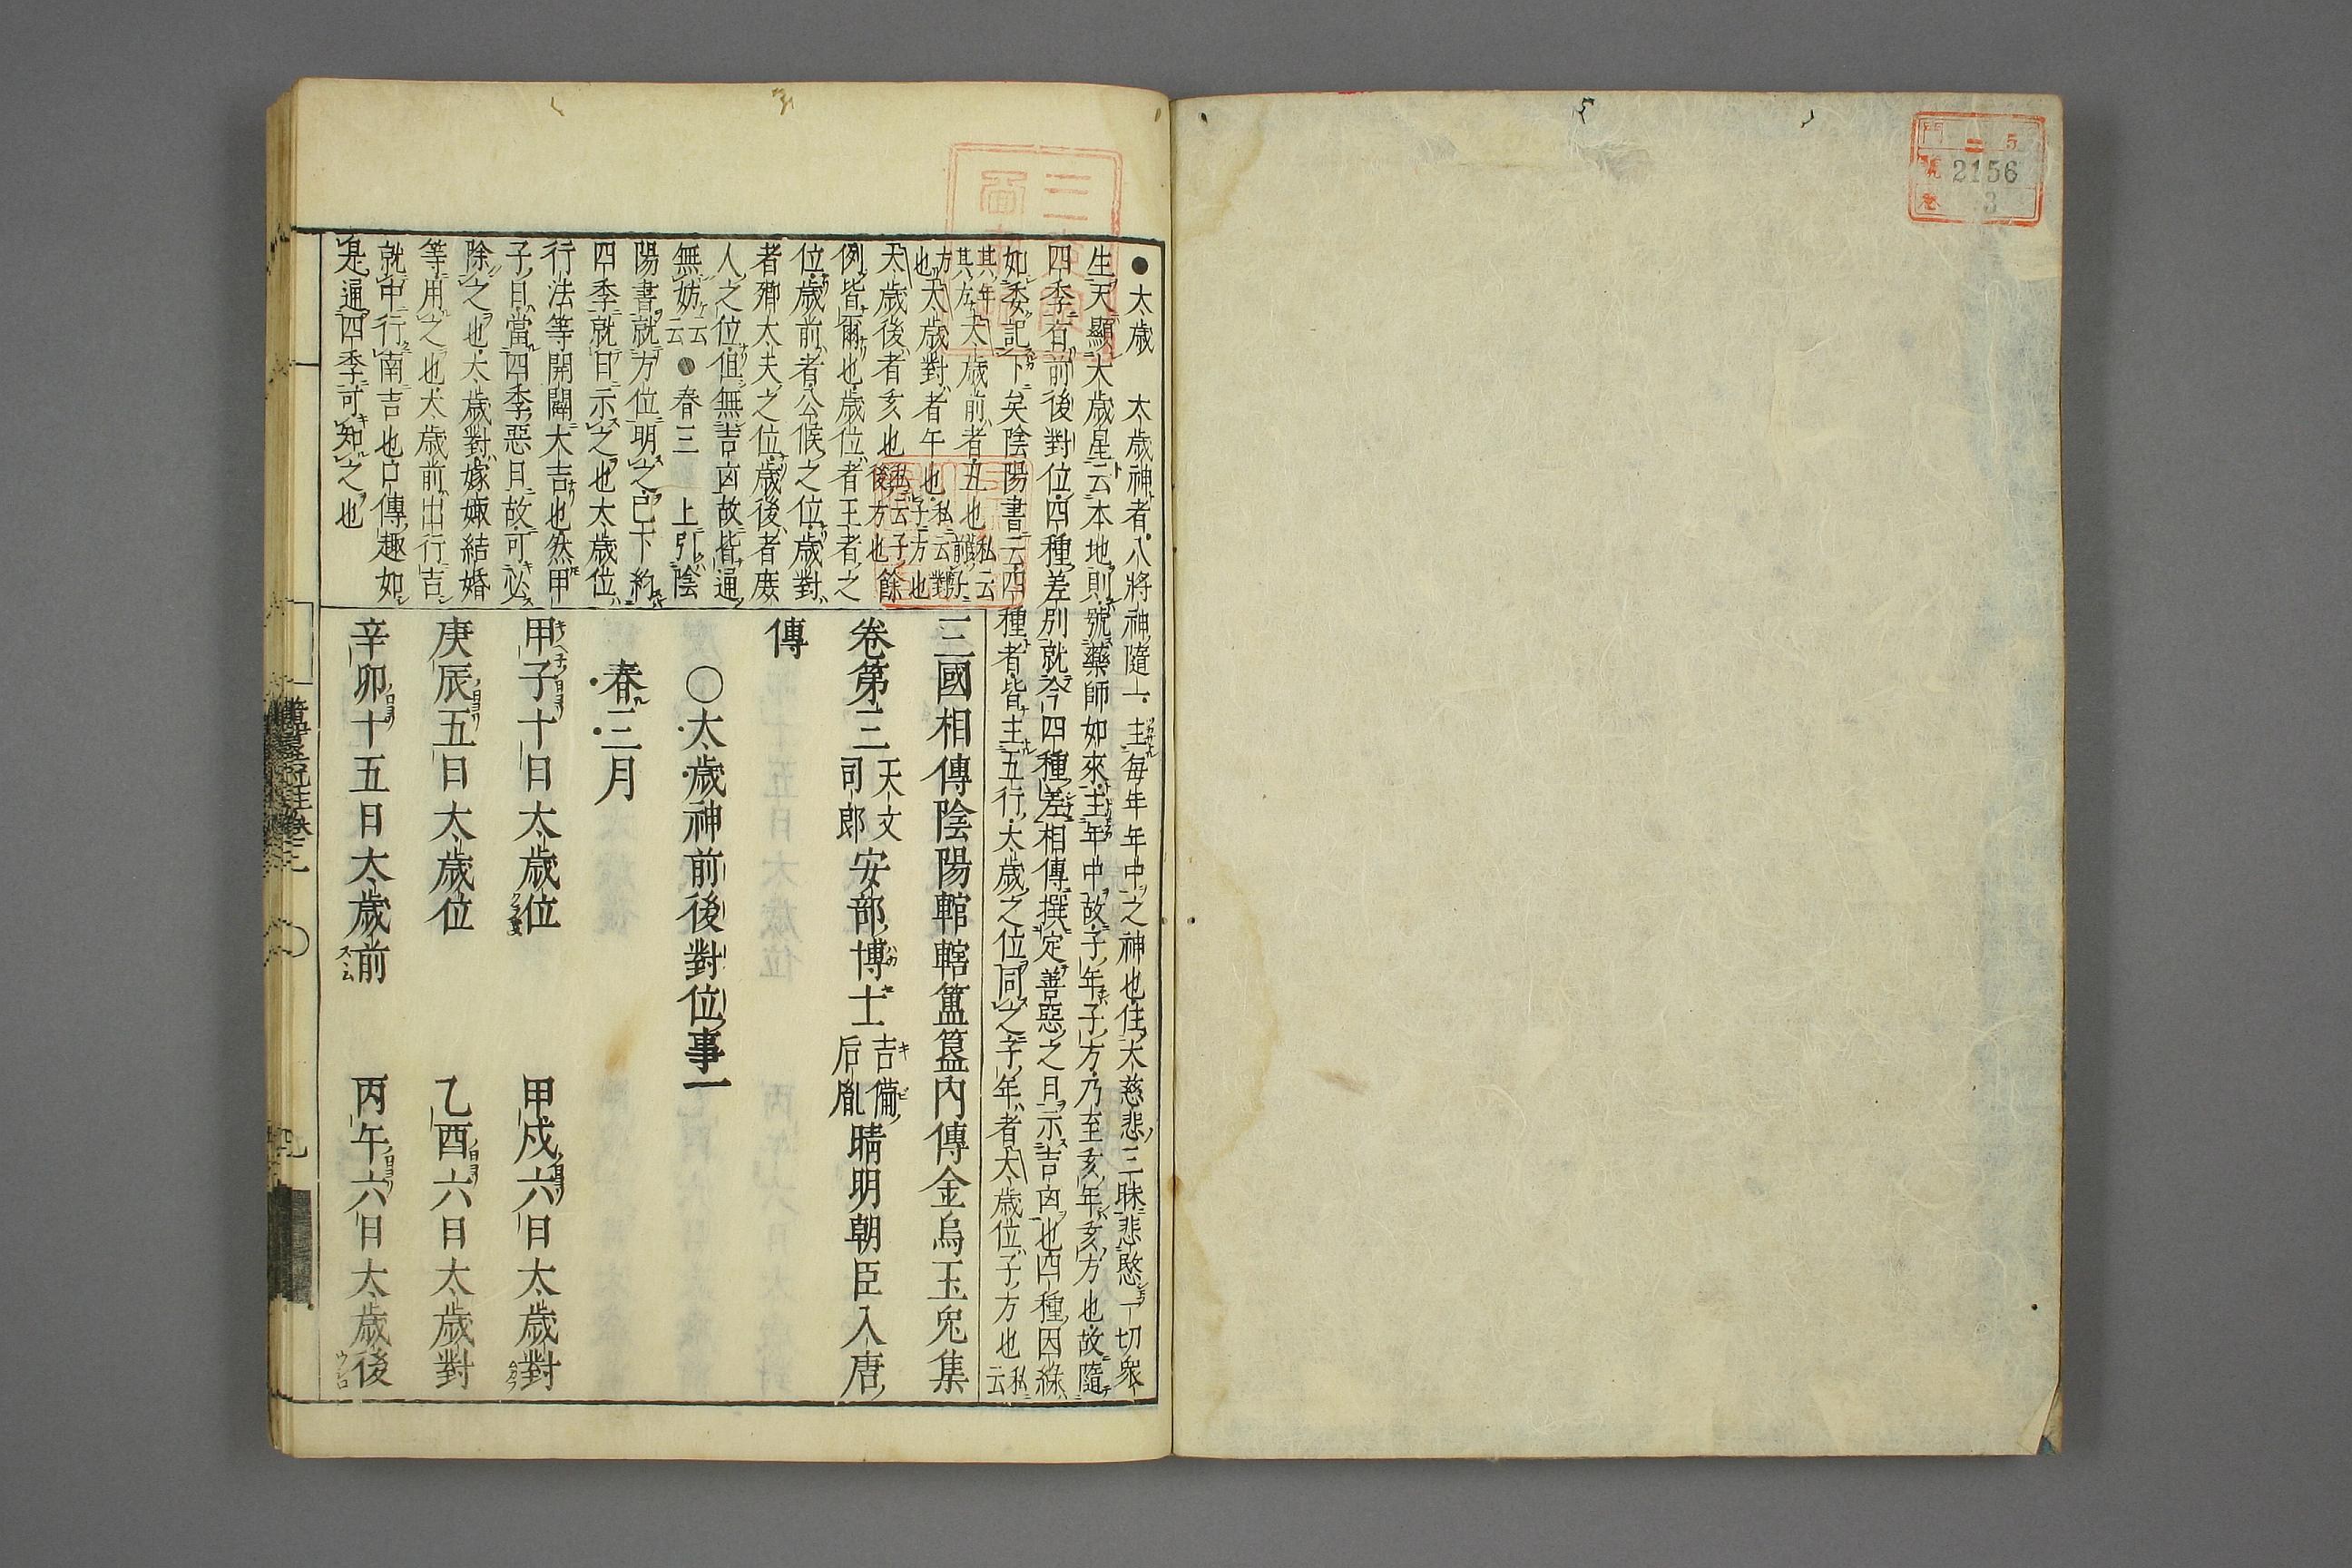 門 二 5
號 2156
卷 3
●太歳　太歳神者八將神隨一主毎年年中之神也住大慈悲三昧悲愍一切衆
生天顯大歳星云本地則號藥師如來主年中故子年子方乃至亥年亥方也故隨
四季有前後對位四種差別就今四種差相傳撰定善惡之日示吉凶也四種因緣
如委記下矣陰陽書云四種者皆主五行大歳之位同之子年者大歳位子方也私云
其年其方大歳前者丑也私云
方也大歳對者午也私云對子方也
大歳後者亥也私云子後方也餘
例皆爾也歳位者王者之
位歳前者公候之位歳對
者卿太夫之位歳後者庶
人之位但無吉凶故皆通
無妨云云●春三　上引陰
陽書就方位明之已下約
四季就日示之也太歳位
行法等開闢大吉也然甲
子日當四季惡日故可必
除之也大歳對嫁娵結婚
等用之也大歳前出行吉
就中行南吉也口傳趣如
是通四季可知之也
三國相傳陰陽輨轄簠簋內傳金烏玉兎集
卷第三天文司郎安部博士吉備后胤晴明朝臣入唐
傳
○太歳神前後對位事一
春三月
甲子十日太歳位　甲戌六日太歳對
庚辰五日太歳位　乙酉六日太歳對
辛卯十五日太歳前　丙午六日太歳後